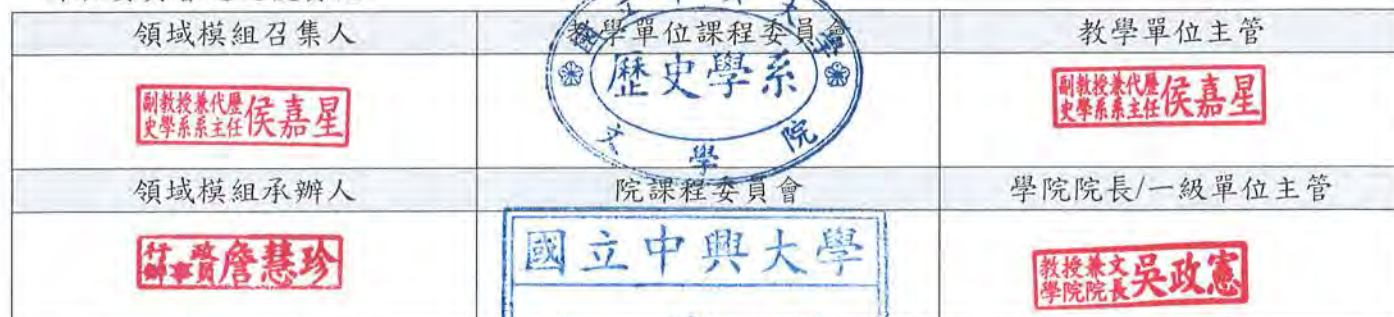 領域模組召集人 教學單位課程委員會 教學單位主管
副教授兼代歷史學系系主任 侯嘉星
國立中興大學
歷史學系
文學院
副教授兼代歷史學系系主任 侯嘉星
領域模組承辦人 院課程委員會 學院院長/一級單位主管
行政辦事員 詹慧珍
國立中興大學
教授兼文學院院長 吳政憲